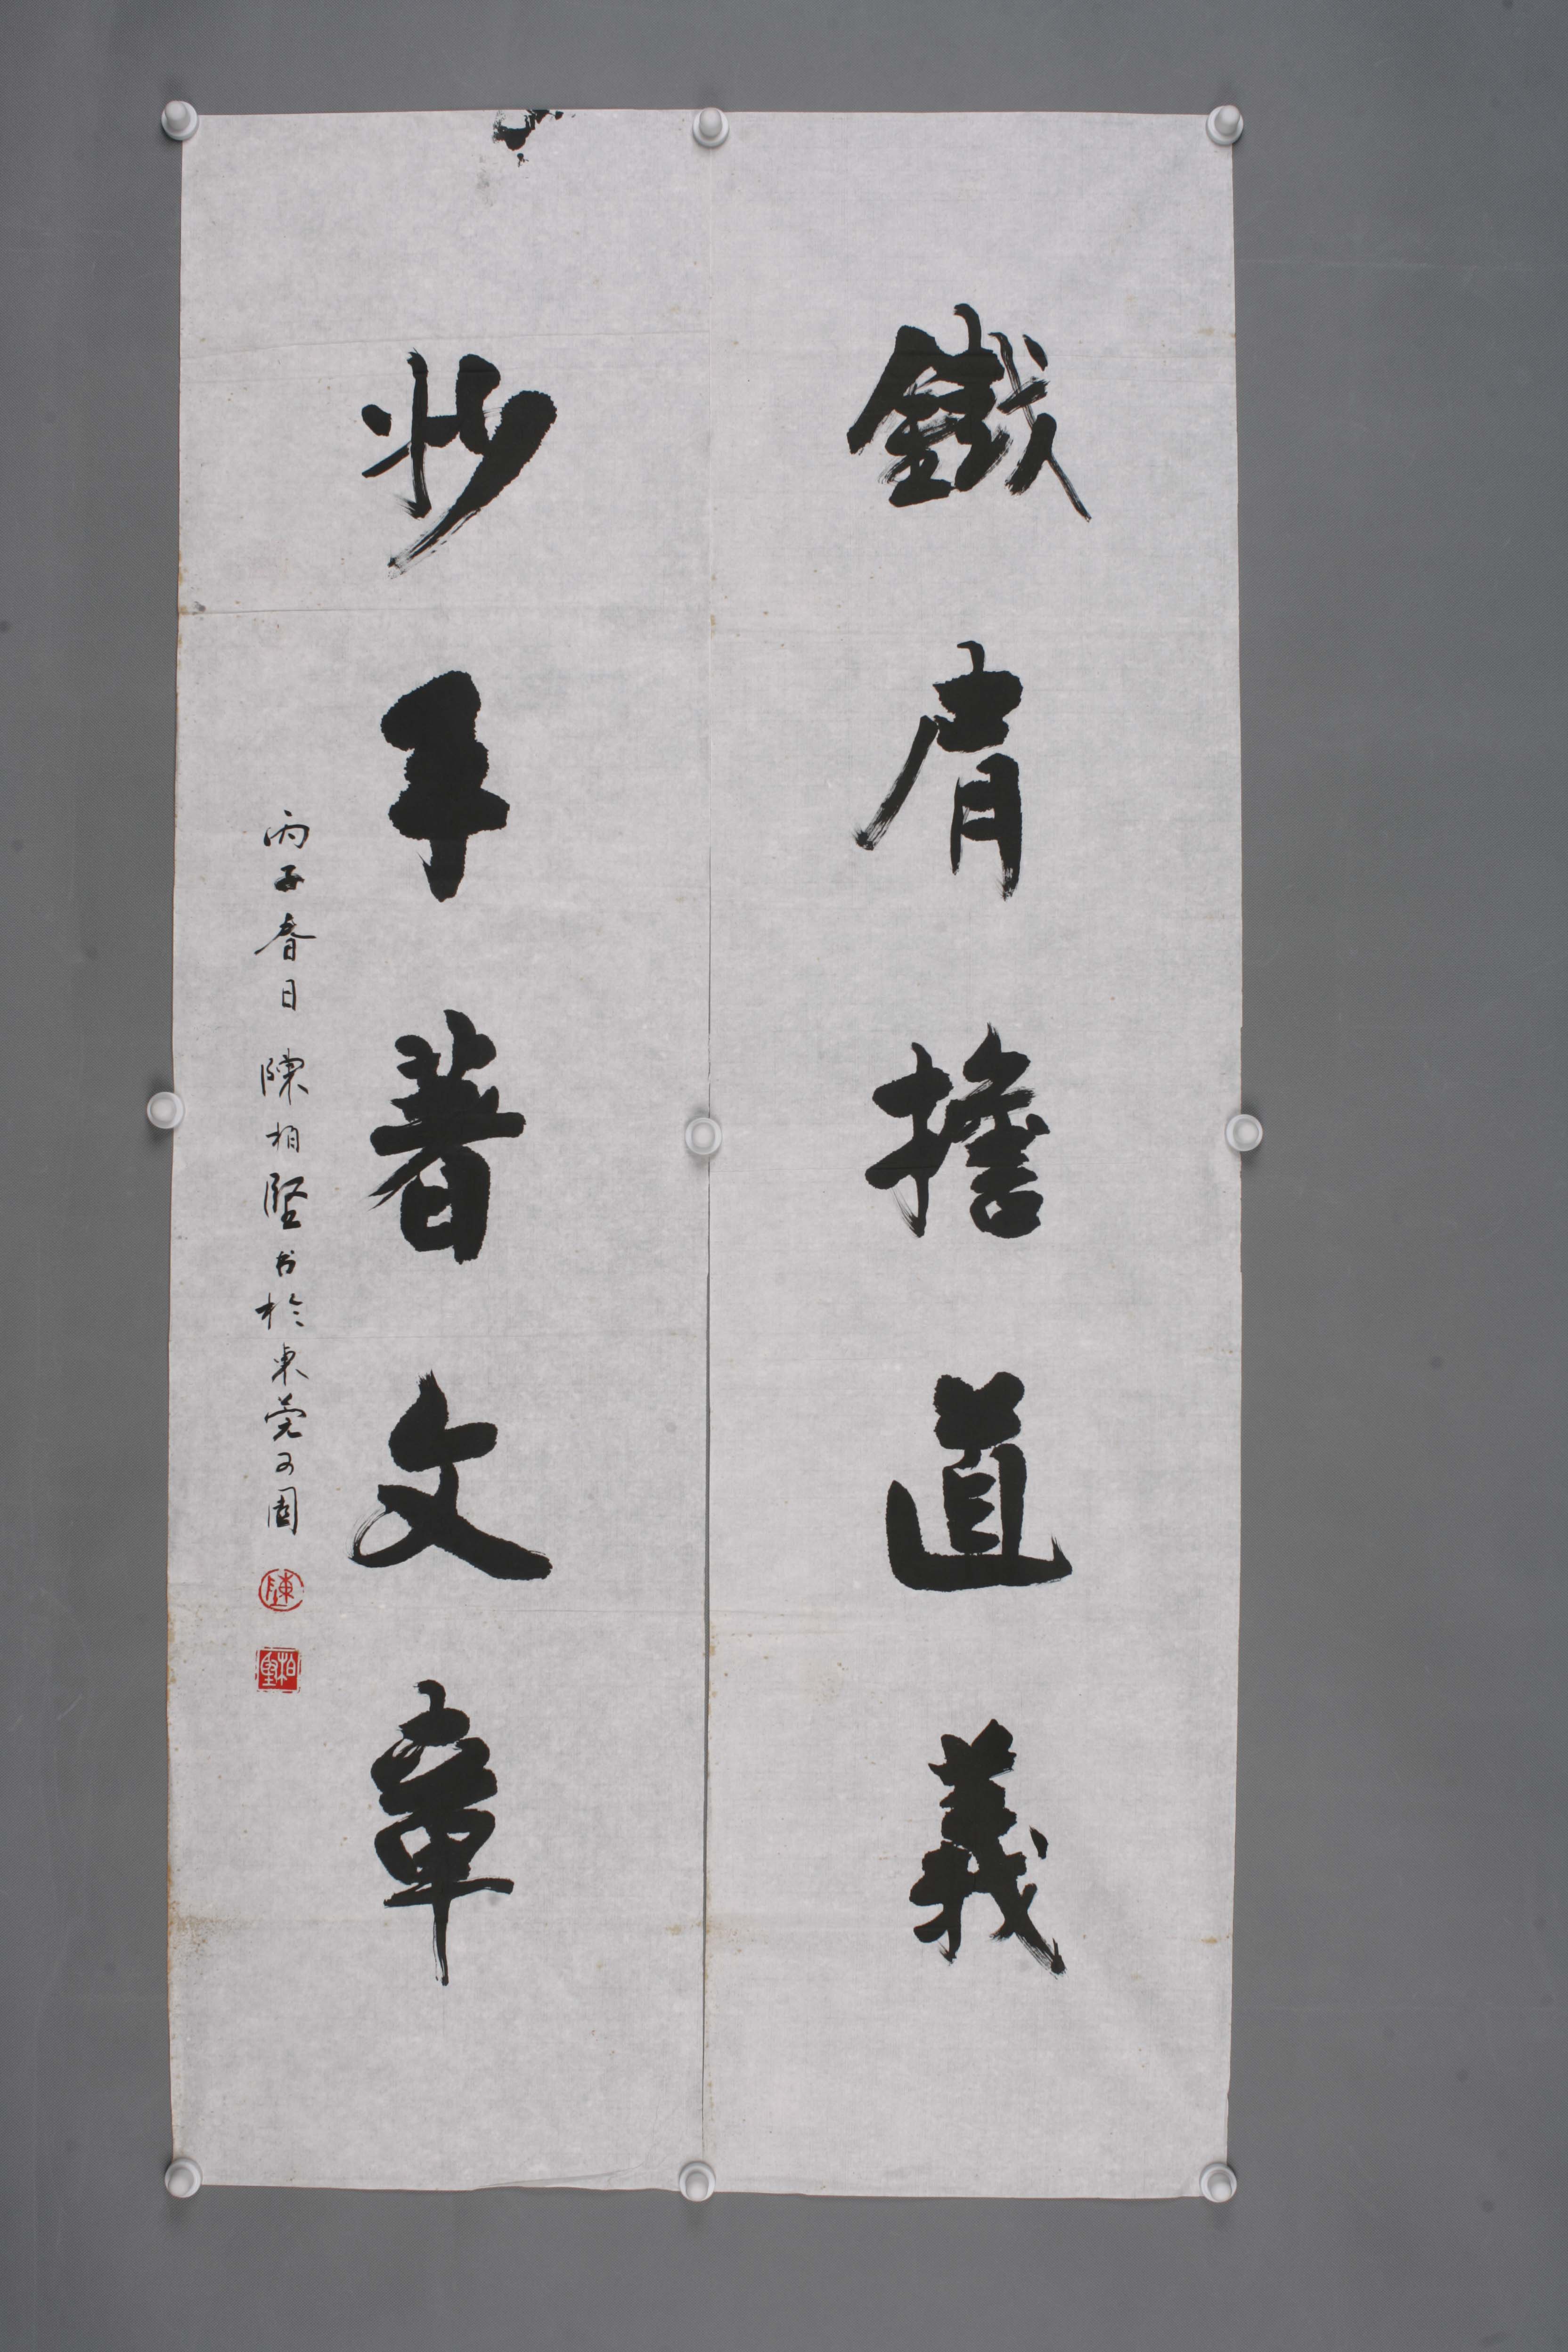 鐵肩擔道義
妙手著文章
丙子春日陳柏堅书於東莞可園
陳
柏堅